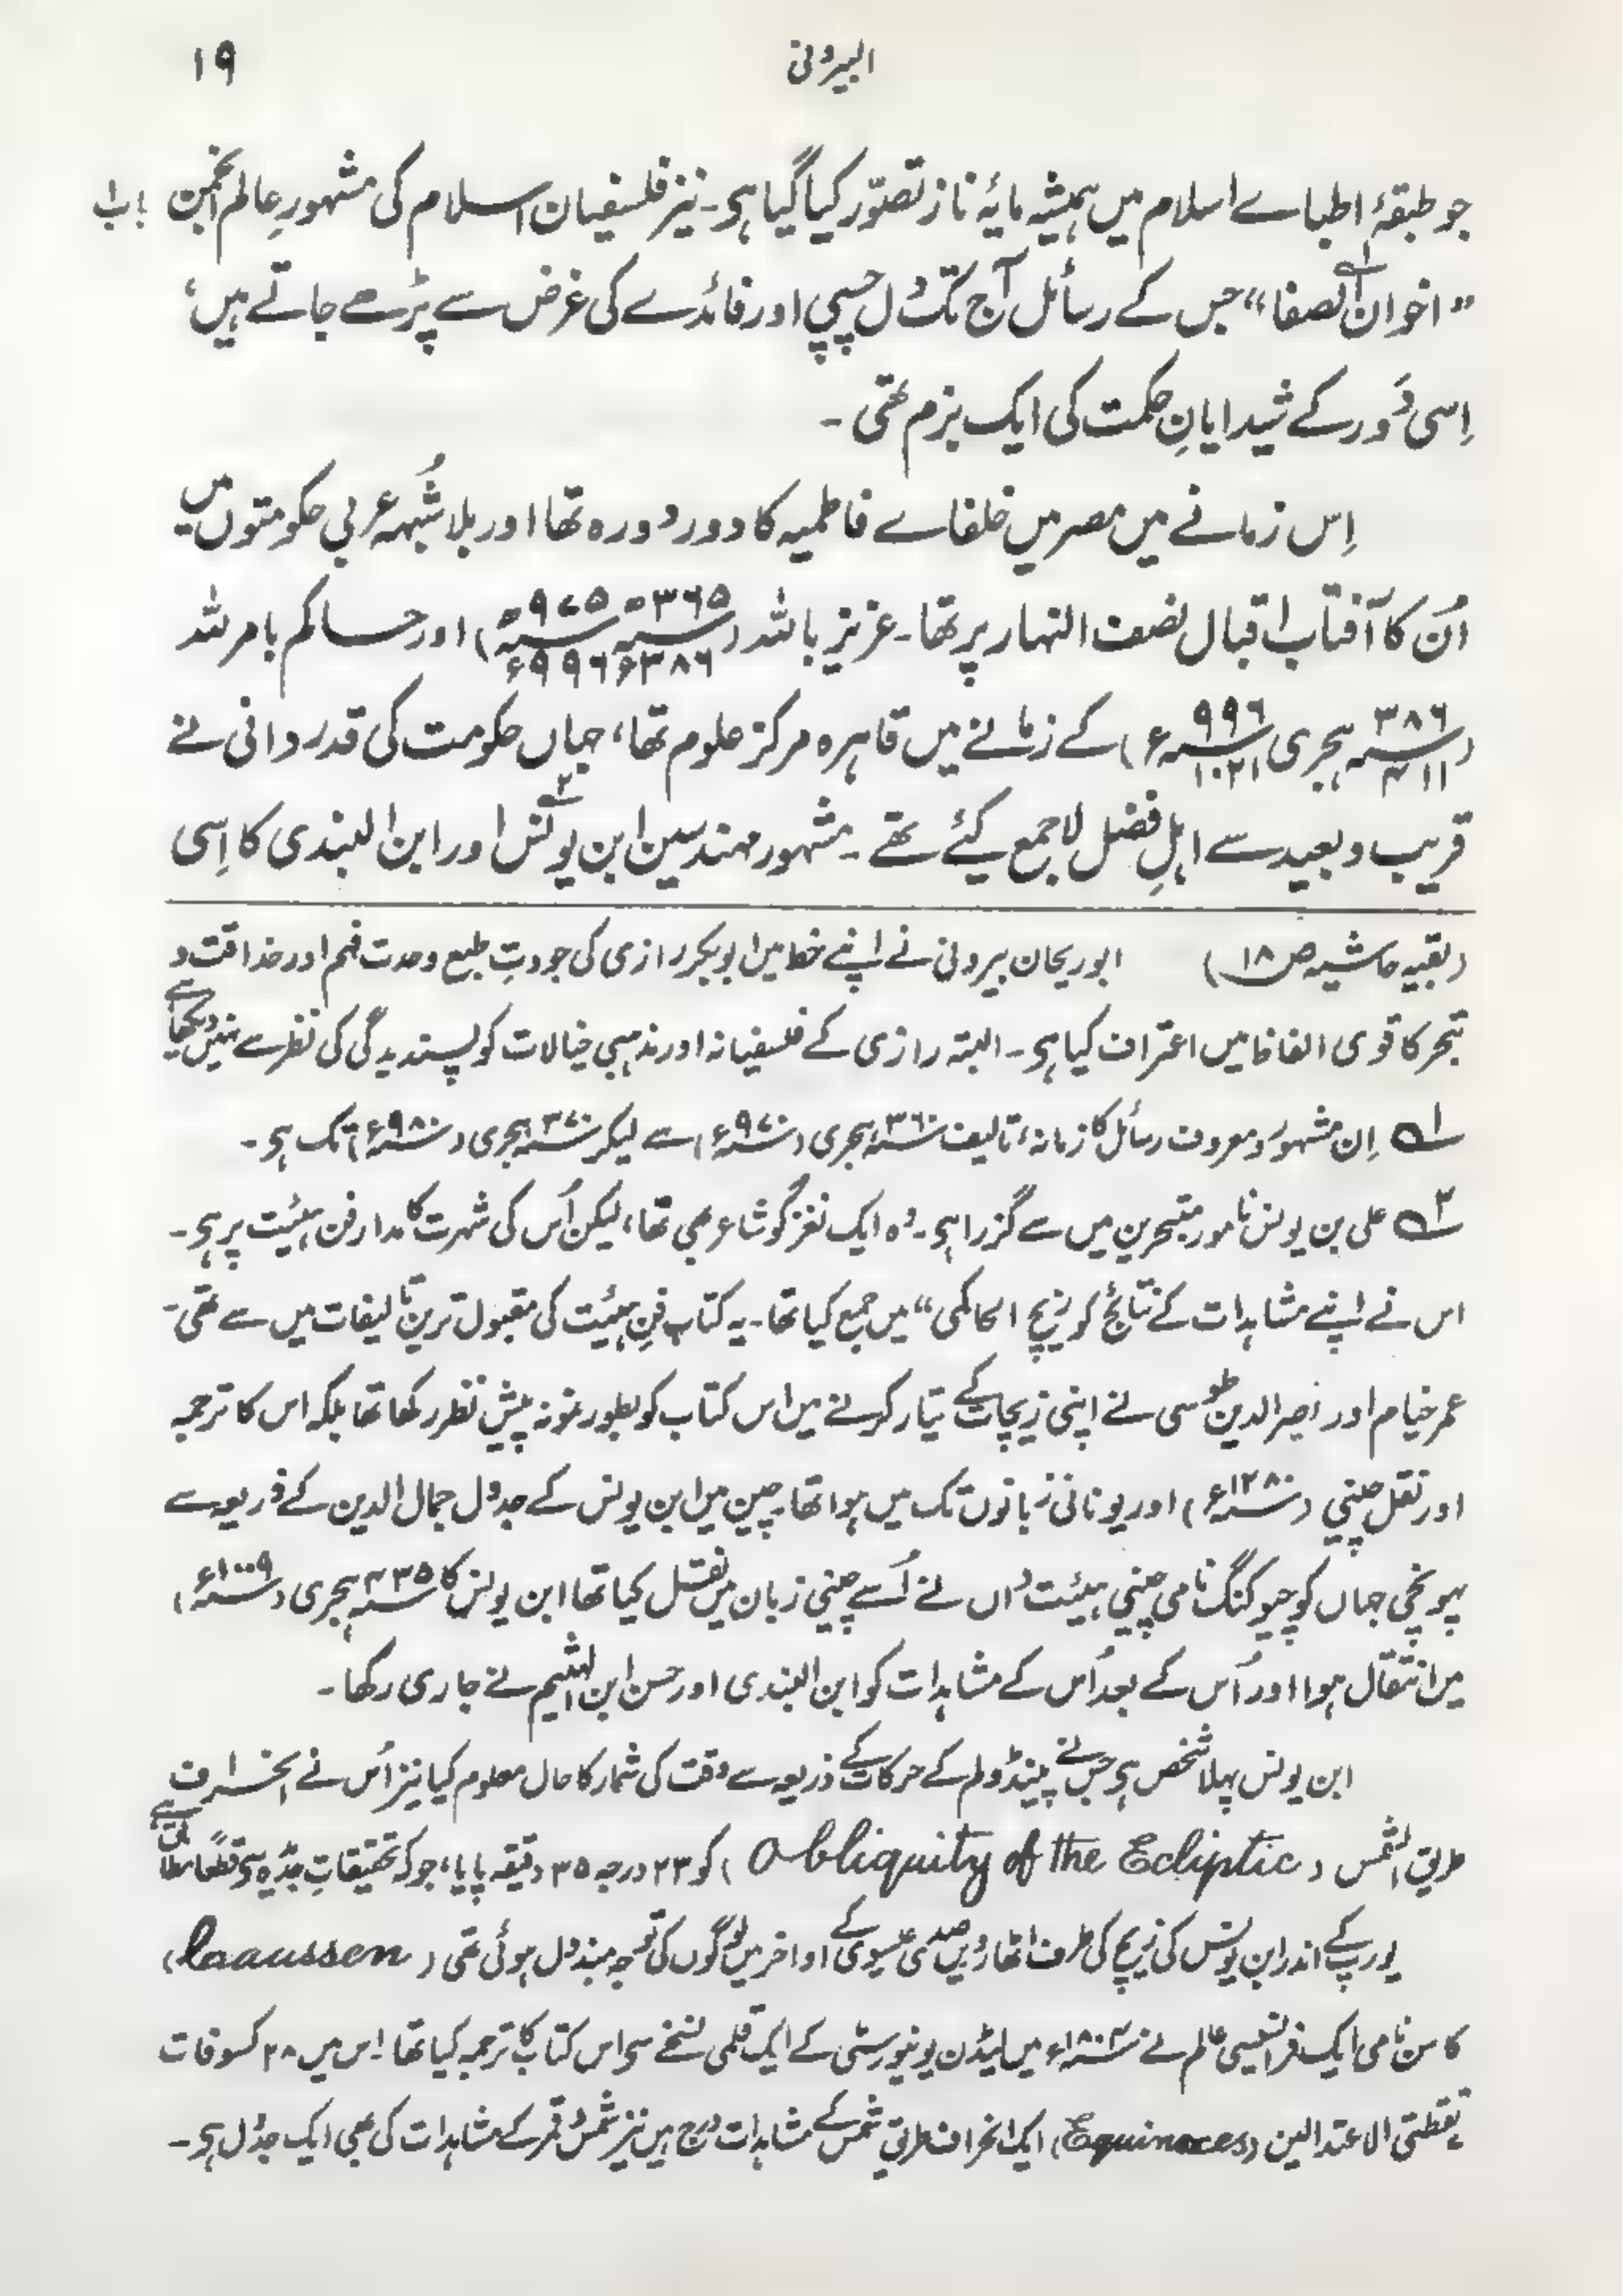 البیرونی ۱۹
جو طبقۂ اطباے اسلام میں ہمیشہ مایۂ ناز تصوّر کیا گیا ہی۔ نیز فلسفیان اسلام کی مشہورِ عالم انجمن باب
”اخوان الصفا“ جس کے رسائل آج تک دل چسپی اور فائدے کی غرض سے پڑھے جاتے ہیں،
اِسی دَور کے شیدایانِ حکمت کی ایک بزم تھی۔
اِس زمانے میں مصر میں خلفاے فاطمیہ کا دور دورہ تھا اور بلا شُبہہ عربی حکومتوں میں
اُن کا آفتاب اقبال نصف النہار پر تھا۔ عزیز باللہ (۳۶۵ھ ۹۷۵ھ ۳۸۶ء ۹۹۶ء) اور حاکم بامر للہ
(۳۸۶ ۴۱۱ ہجری ۹۹۶ ۱۰۲۱ء) کے زمانے میں قاہرہ مرکز علوم تھا، جہاں حکومت کی قدردانی نے
قریب و بعید سے اہلِ فضل لا جمع کیے تھے۔ مشہور مہندسین ابن یونس۲ اور ابن النبدی کا اِسی
(بقیہ حاشیہ ص ۱۸) ابوریحان بیرونی نے اپنے خط میں ابوبکر رازی کی جودتِ طبع وحدت فہم اور حذاقت و
تبحر کا قوی الفاظ میں اعتراف کیا ہی۔ البتہ رازی کے فلسفیانہ اور مذہبی خیالات کو پسندیدگی کی نظر سے نہیں دیکھا ہے
۱ے اِن مشہور و معروف رسائل کا زمانۂ تالیف ۳۶۰ ہجری (۹۷۰ء) سے لیکر ۳۷۰ ہجری (۹۸۰ء) تک ہی۔
۲ے علی بن یونس نامور متبحرین میں سے گزرا ہی۔ وہ ایک نغز گو شاعر بھی تھا، لیکن اُس کی شہرت کا مدار فن ہیئت پر ہی۔
اس نے اپنے مشاہدات کے نتائج کو ”زیچ الحاکمی“ میں جمع کیا تھا۔ یہ کتاب فنِ ہیئت کی مقبول ترین تالیفات میں سے تھی۔
عمر خیام اور نصیر الدین طوسی نے اپنی زیچات کے تیار کرنے میں اس کتاب کو بطور نمونہ پیشِ نظر رکھا تھا بلکہ اس کا ترجمہ
اور نقل چینی (۱۲۸۰ء) اور یونانی زبانوں تک میں ہوا تھا۔ چین میں ابن یونس کے جدول جمال الدین کے ذریعہ سے
پہونچی جہاں کو چیو کنگ نامی چینی ہیئت داں نے اُسے چینی زبان میں نقل کیا تھا ابن یونس کا ہجری (۱۰۰۹ء)
میں انتقال ہوا اور اُس کے بعد اُس کے مشاہدات کو ابن النبدی اور حسن ابن الہثیم نے جاری رکھا۔
ابن یونس پہلا شخص ہی جس نے پینڈولم کے حرکات کے ذریعہ سے وقت کی شمار کا حال معلوم کیا نیز اُس نے انحراف
طریق الشمس (Obliquity of the Ecliptic) کو ۲۳ درجہ ۳۵ دقیقہ پایا، جو کہ تحقیقاتِ جدیدہ سی قطعاً مطابق ہے
یورپ کے اندر ابن یونس کی زیچ کی طرف اٹھارویں صدی عیسوی کے اواخر میں لوگوں کی توجہ مبذول ہوئی تھی (Caaussen)
کاسن نامی ایک فرانسیسی عالم نے ۱۸۰۴ء میں لیڈن یونیورسٹی کے ایک قلمی نسخے سی اس کتاب کا ترجمہ کیا تھا۔ اس میں ۲۸ کسوفات
نقطتی الاعتدالین (Equinoxes) ایک انحراف طریق شمس کے مشاہدات درج ہیں نیز شمس و قمر کے مشاہدات کی بھی ایک جدول ہی۔